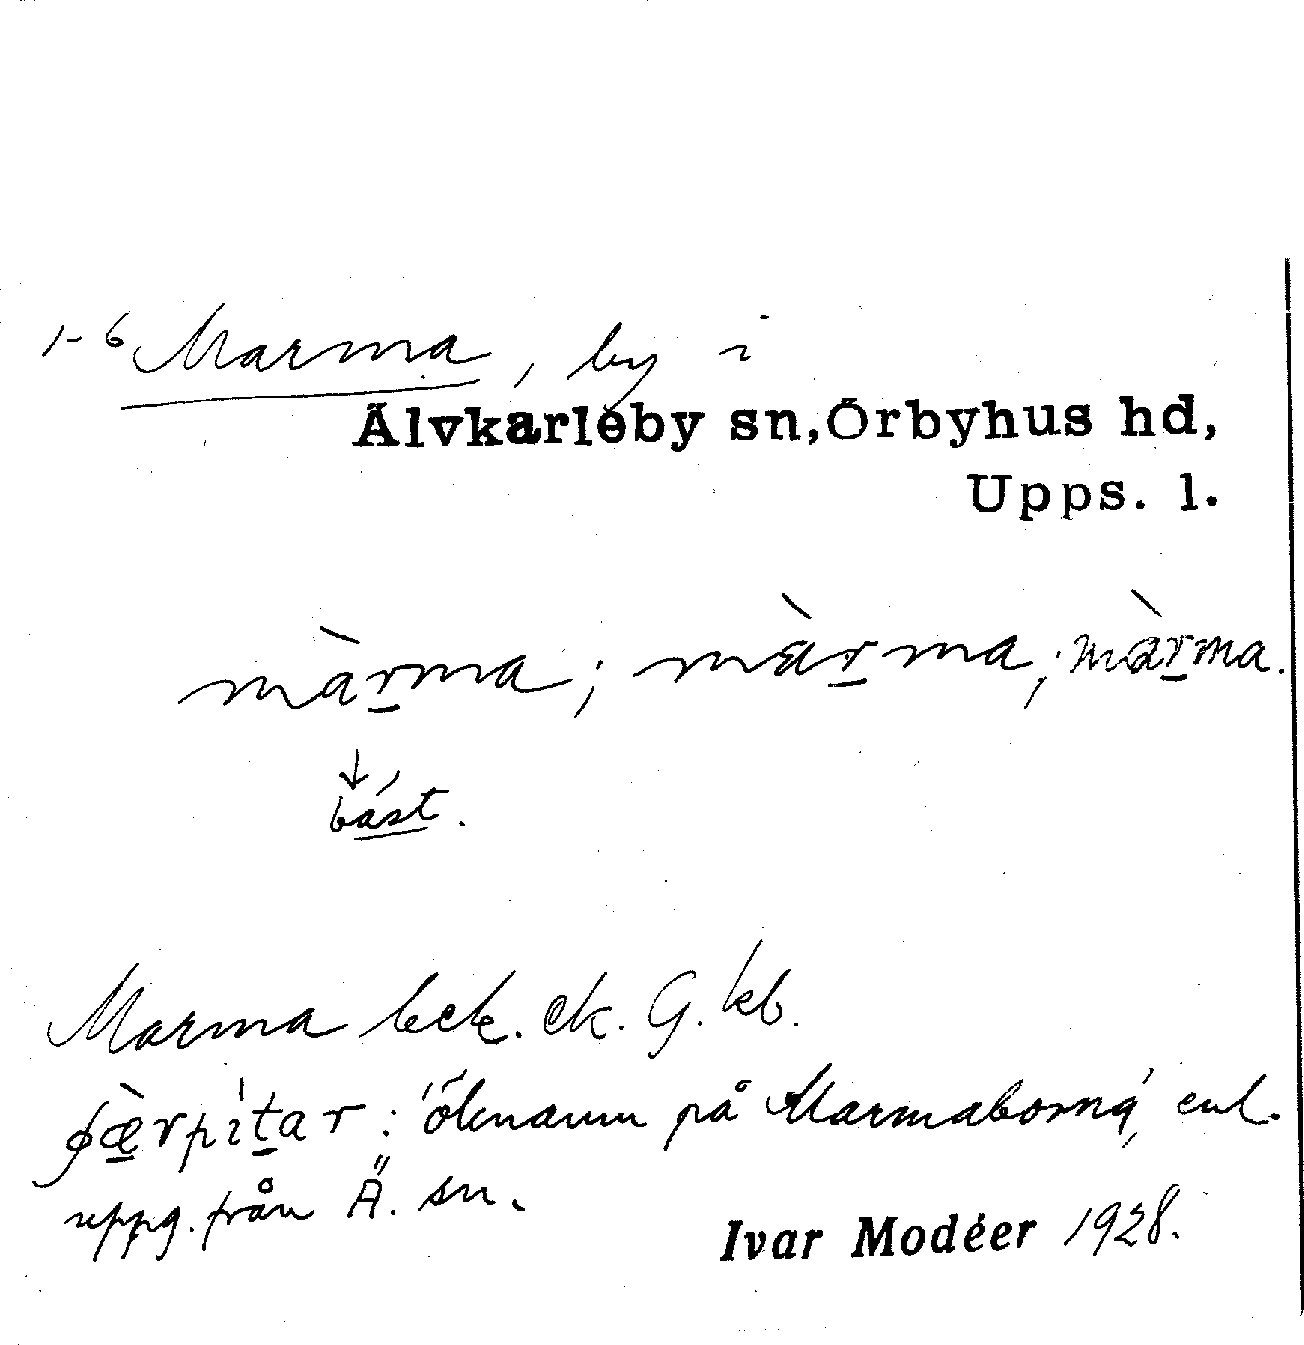 1-6 Marma, by i
Älvkarleby sn, Örbyhus hd,
Upps. l.
màrma; màrma; màrma.
↓
bást.
Marma bek. ek. G. kb.
öknamn på Marmaborna, enl.
uppg. från Ä. sn.
Ivar Modéer 1928.